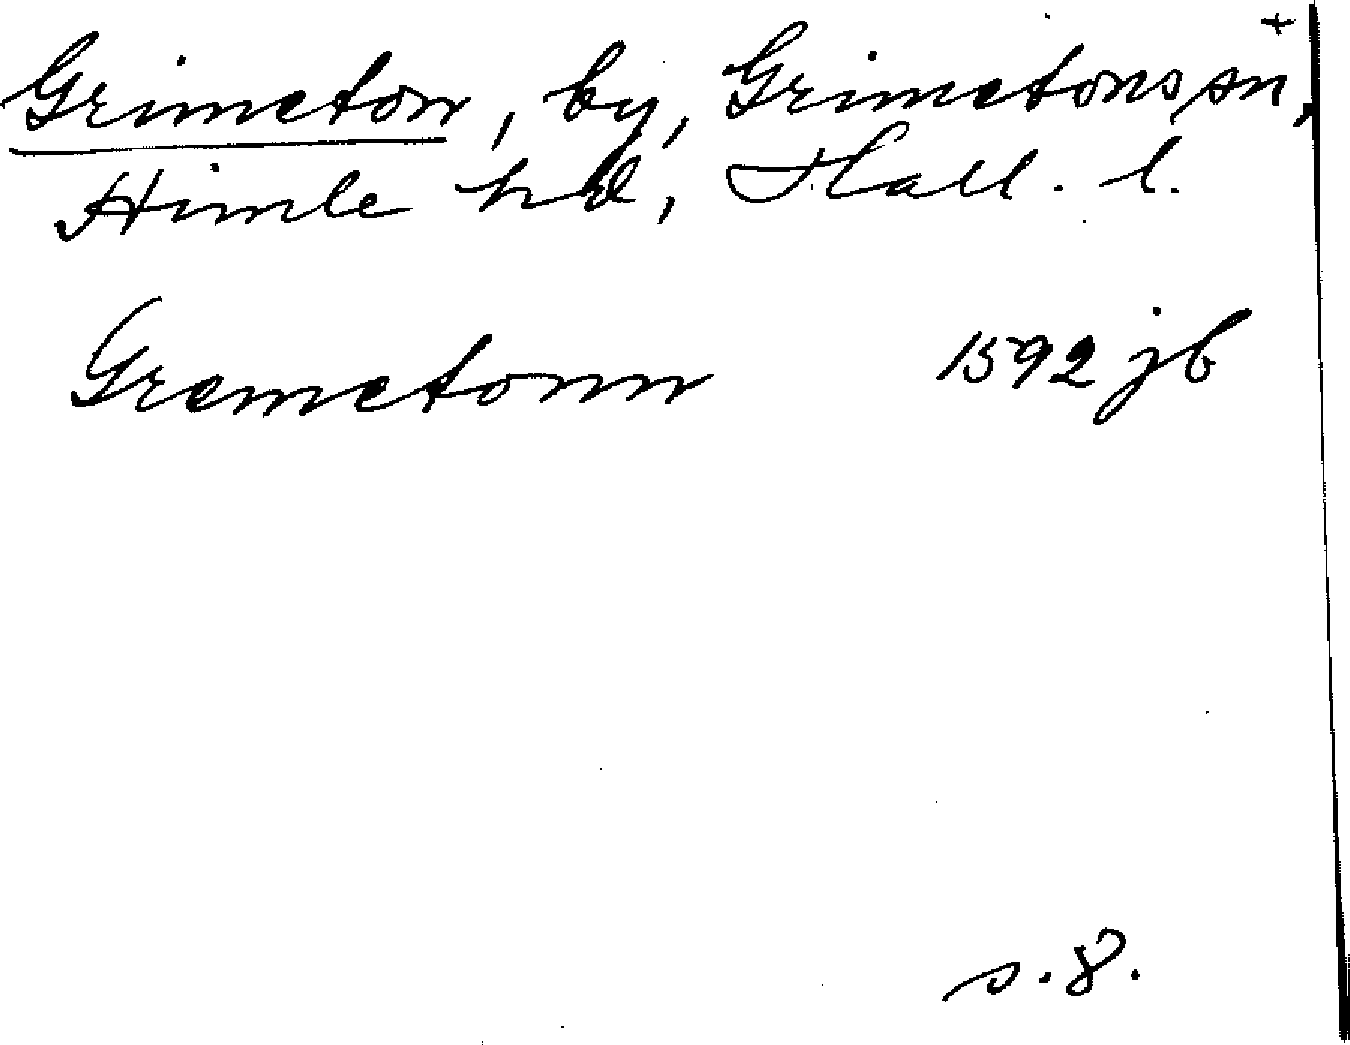 +
Grimeton, by, Grimetons sn,
Himle hd, Hall. l.
Gremetonn 1592 jb
s. 8.